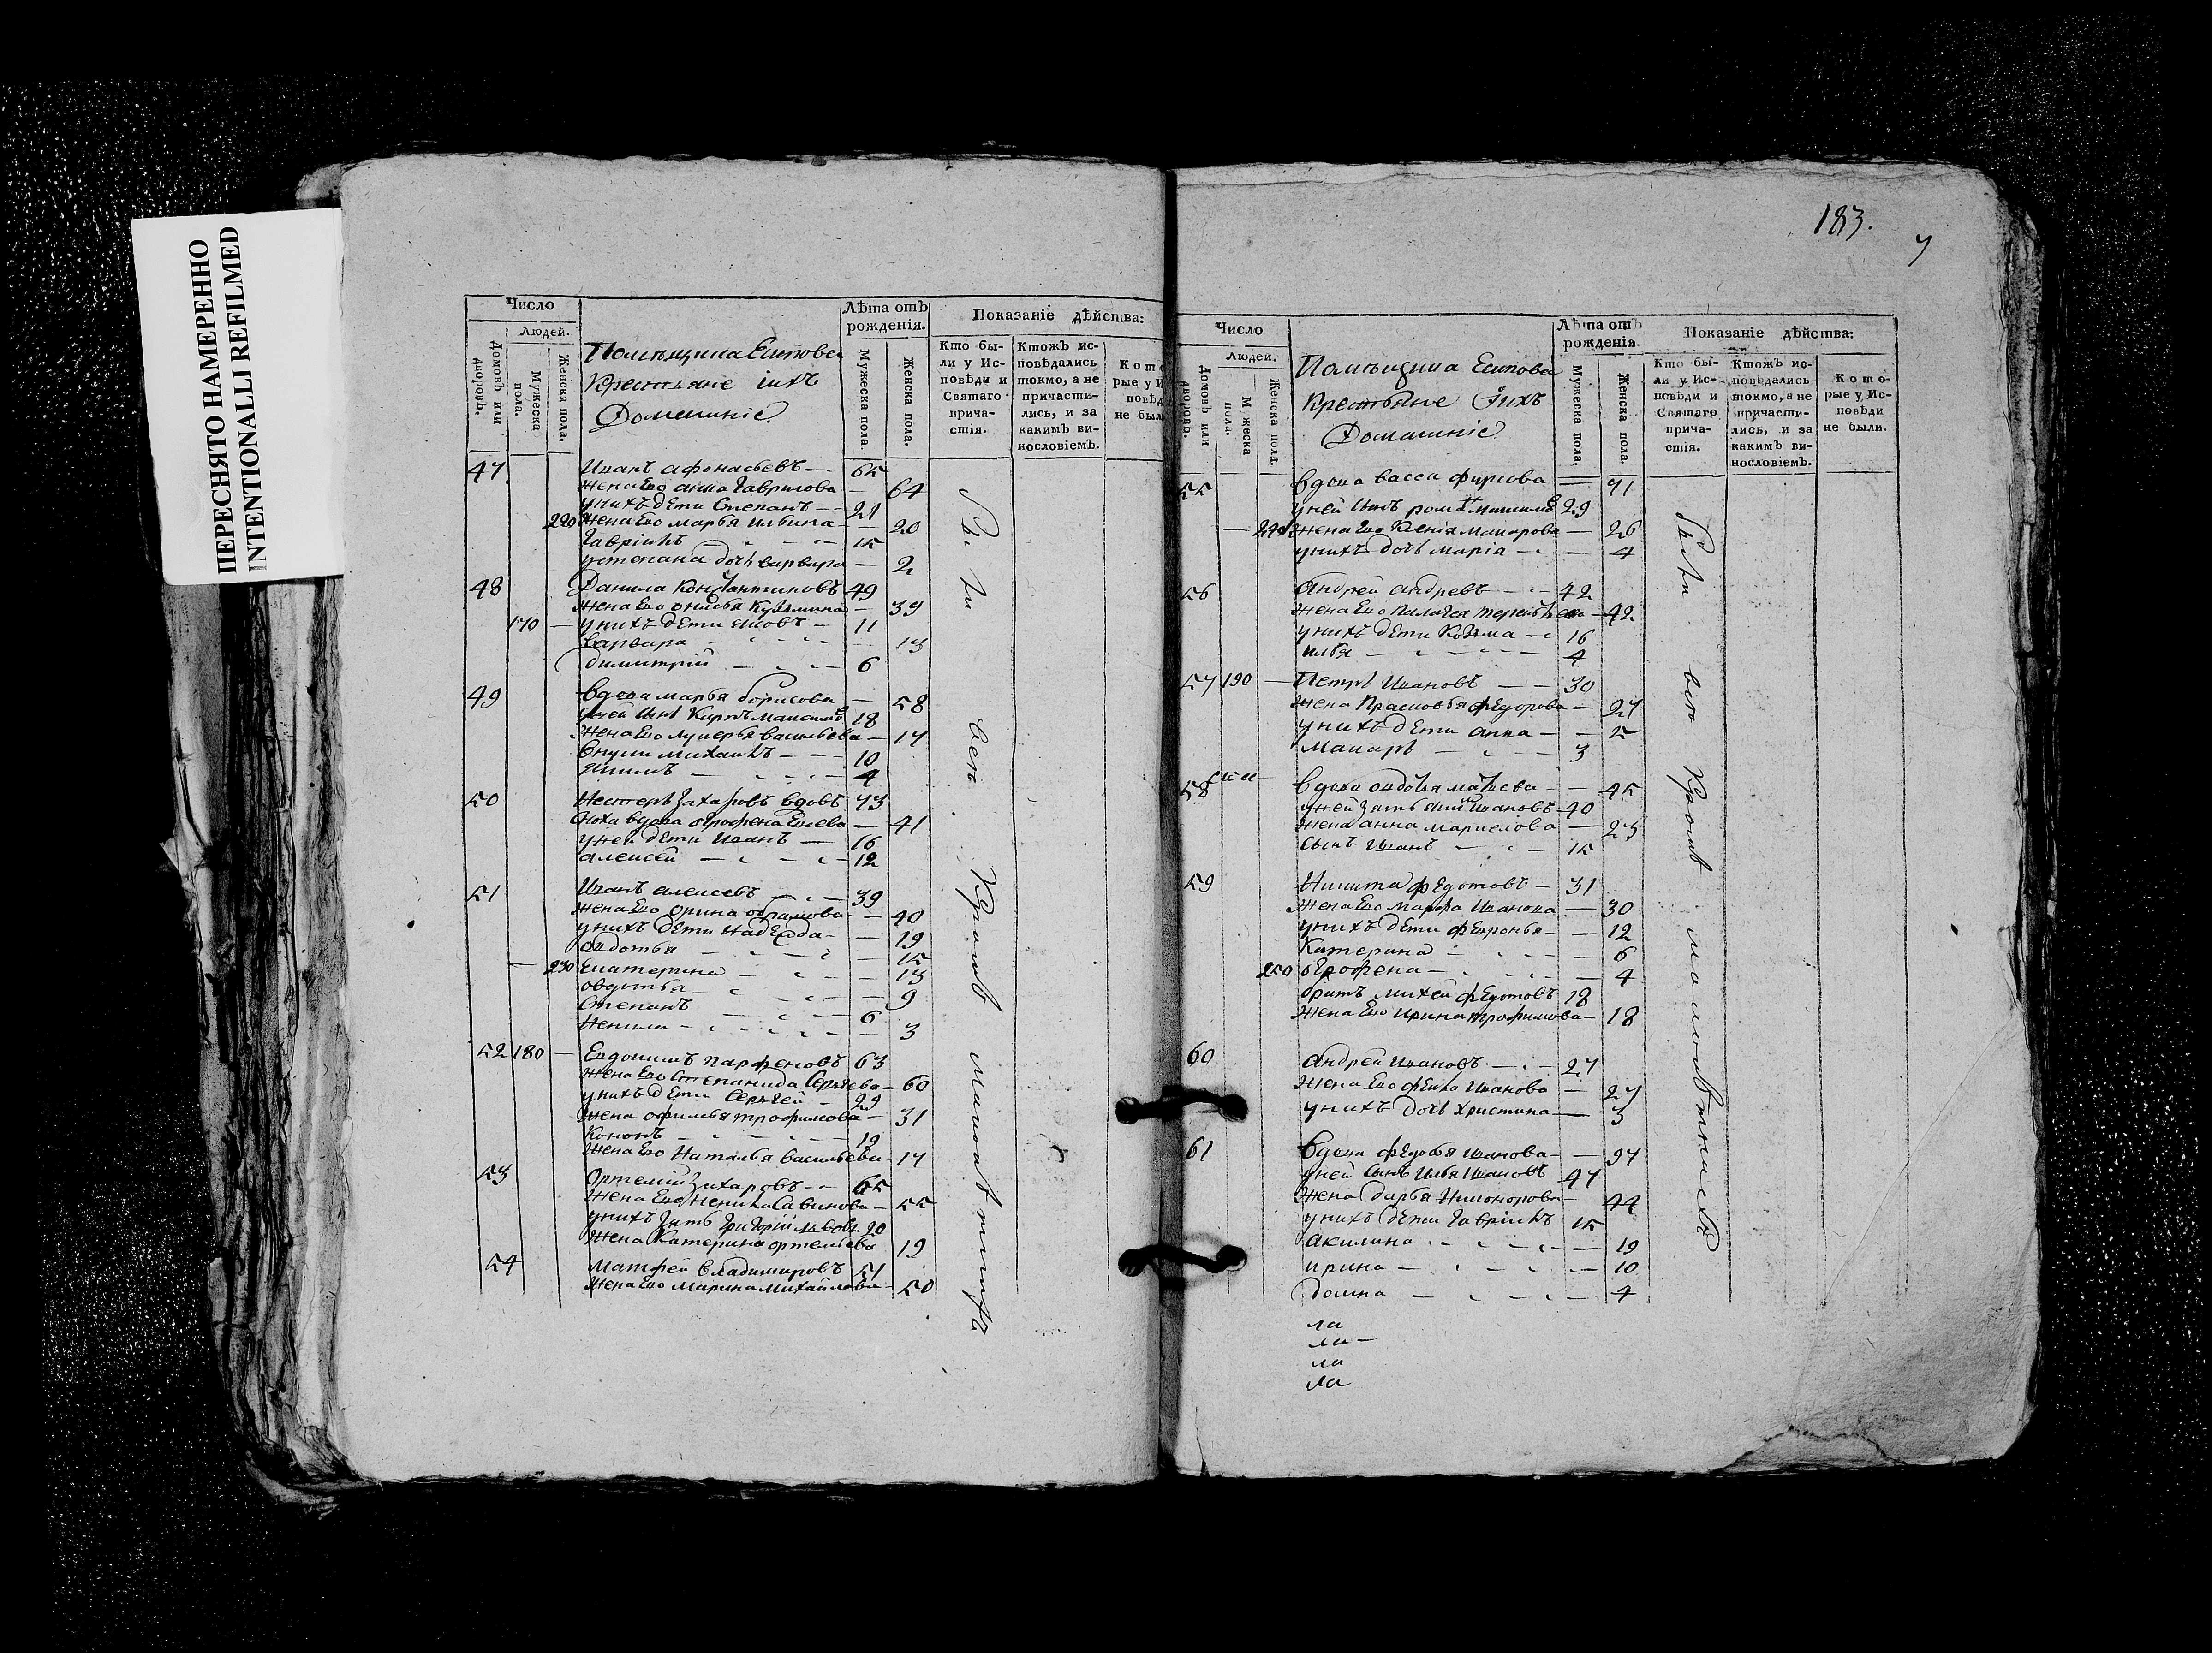 ПЕРЕСНЯТО НАМЕРЕННО
INTENTIONALLI REFILMED
Число
Людей.
Домовъ или дворовъ.
Мужеска пола.
Женска пола.
Помѣщика Есипова
Крестьяне ихъ
Домашніе
Лѣта отъ рожденія.
Мужеска пола.
Женска пола.
Показаніе дѣйства:
Кто были у Исповѣди и Святаго причастія.
Ктожъ исповѣдались токмо, а не причастились, и за какимъ винословіемъ.
Кото
рые у И
повѣд
не был
47 Иванъ афонасьевъ — 65
жена Ево анна Гаврилова — 64
унихъ дѣти Степанъ — 21
220 жена Ево марья ильина — 20
Гавріилъ — 15
устепана дочь варвара — 2
48 Данила Констянтиновъ 49
жена Ево Кузьмина — 39
170 — унихъ дѣти — 11
варвара — 13
димитрій — 6
49 вдова марья борисова — 58
уней Сынъ Карпъ 18
жена Ево лукерья васильева — 17
внуки михаилъ — 10
— 4
50 Нестеръ Захаровъ вдовъ 73
сноха вдова — 41
уней дѣти Иванъ — 16
алексей — 12
51 Иванъ алексеевъ — 39
жена Ево орина — 40
унихъ дѣти надежда — 19
авдотья — 15
— 230 Екатерина — 13
овдотья — 9
Степанъ — 6
Ненила — 3
52 180 — Евдокимъ парфеновъ 63
жена Ево Степанида Сергѣева — 60
унихъ дѣти Сергей — 29
жена офимья трофимова — 31
Кононъ — 19
жена Ево Наталья васильева — 17
53 Ортемій Захаровъ — 65
жена Ево Ненила Савинова — 55
унихъ зять Григорій 20
жена Катерина ортемьева 19
54 матфей владимировъ 51
жена Ево марина михайлова — 50
вси
183.
Число
Людей.
Домовъ или дворовъ.
Мужеска пола.
Женска пола.
Помѣщика Есипова
Крестьяне ихъ
Домашніе
Лѣта отъ рожденія.
Мужеска пола.
Женска пола.
Показаніе дѣйства:
Кто были у Исповѣди и Святаго причастія.
Ктожъ исповѣдались токмо, а не причастились, и за какимъ винословіемъ.
Которые у Исповѣди не были.
55 вдова васса фирсова — 71
уней Сынъ 29
— 240 жена Ево Ксенія макарова — 26
унихъ дочь марія — 4
56 андрей андревъ — 42
жена Ево Палагея — 42
унихъ дѣти Козма — 16
илья — 4
57 190 — Петръ Ивановъ — 30
жена Прасковья федорова — 27
унихъ дѣти анна — 5
макаръ — 3
58 вдова — 45
уней зять 40
жена анна — 23
сынъ Иванъ — 15
59 Никита федотовъ — 31
жена Ево марфа Иванова — 30
унихъ дѣти — 12
Катерина — 6
250 — 4
братъ михей федотовъ 18
жена Ево ирина трофимова — 18
60 андрей Ивановъ — 27
жена Ево фекла Иванова — 27
унихъ дочь христина — 3
61 вдова федосья Иванова — 97
уней Сынъ Илья Ивановъ 47
жена дарья — 44
унихъ дѣти Гавріилъ 15
акилина — 19
ирина — 10
домна — 4
ла
ла —
ла
ла